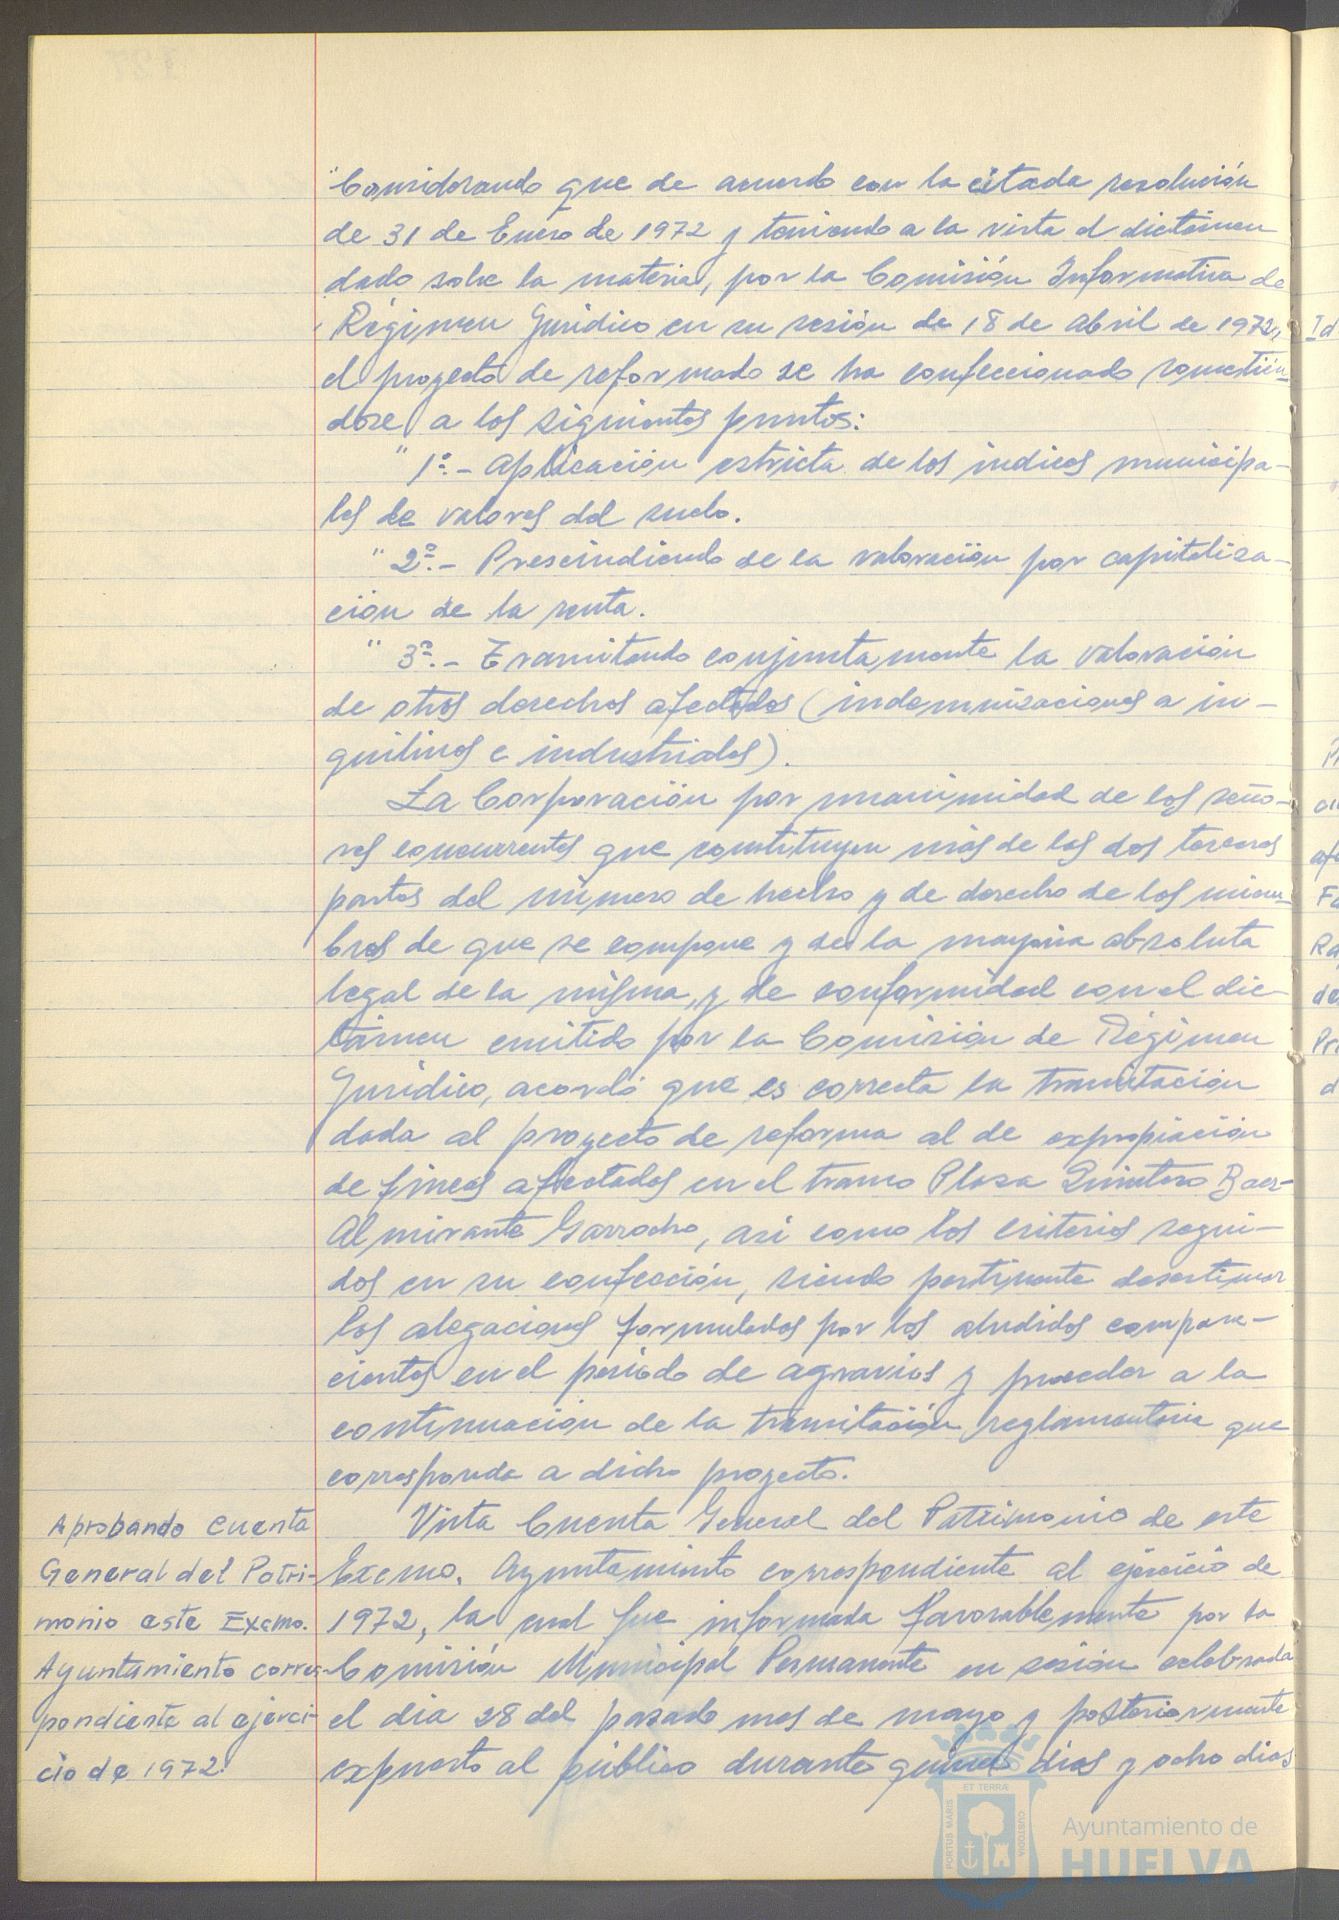 "Considerando que de acuerdo con la citada resolución
de 31 de Enero de 1972 y teniendo a la vista el dictámen
dado sobre la materia, por la Comisión Informativa de
Régimen Jurídico en su sesión de 18 de abril de 1972,
el proyecto de reformado se ha confeccionado sometién-
dose a los siguientes puntos:
"1º.- Aplicación estricta de los indices municipa-
les de valores del suelo.
"2º.- Prescindiendo de la valoración por capitaliza-
ción de la renta.
"3º.- Tramitando conjuntamente la valoración
de otros derechos afectados (indemnizaciones a in-
quilinos e industriales).
La Corporación por unanimidad de los seño-
res concurrentes que constituyen más de las dos terceras
partes del número de hecho y de derecho de los miem-
bros de que se compone y de la mayoria absoluta
legal de la misma, y de conformidad con el dic-
támen emitido por la Comisión de Régimen
Jurídico, acordó que es correcta la tramitación
dada al proyecto de reforma al de expropiación
de fincas afectadas en el tramo Plaza Quintero Baez-
Almirante Garrocho, asi como los criterios segui-
dos en su confección, siendo pertinente desestimar
las alegaciones formuladas por los aludidos compare-
cientes en el periodo de agravios y proceder a la
continuación de la tramitación reglamentaria que
corresponda a dicho proyecto.
Aprobando cuenta
General del Patri-
monio este Excmo.
Ayuntamiento corres-
pondiente al ejerci-
cio de 1972.
Vista Cuenta General del Patrimonio de este
Excmo. Ayuntamiento correspondiente al ejercicio de
1972, la cual fue informada favorablemente por la
Comisión Municipal Permanente en sesión celebrada
el dia 28 del pasado mes de mayo y posteriormente
expuesto al público durante quince dias y ocho dias
PORTUS MARIS
ET TERRÆ
CUSTODIA
Ayuntamiento de
HUELVA